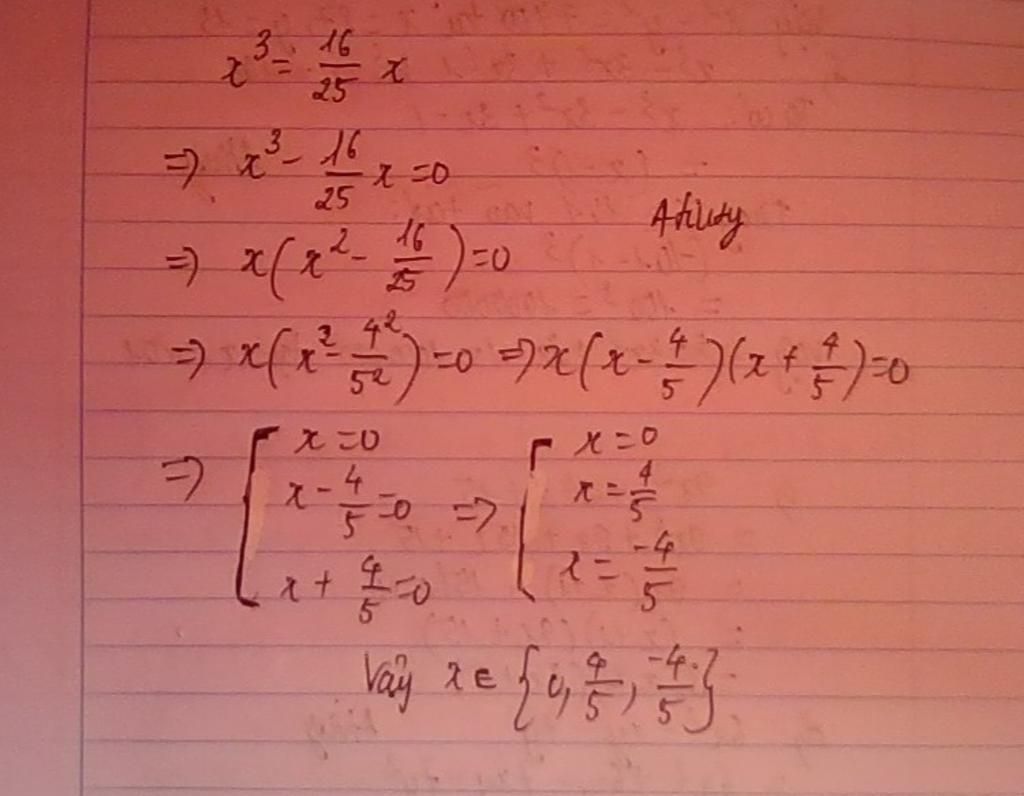 x³ = 16/25 x
=> x³ - 16/25 x = 0
=> x(x² - 16/25) = 0
=> x(x² - 4²/5²) = 0 => x(x - 4/5)(x + 4/5) = 0
=> [ x = 0 => [ x = 0
x - 4/5 = 0 x = 4/5
x + 4/5 = 0 x = -4/5
Vậy x ∈ {0, 4/5, -4/5}.